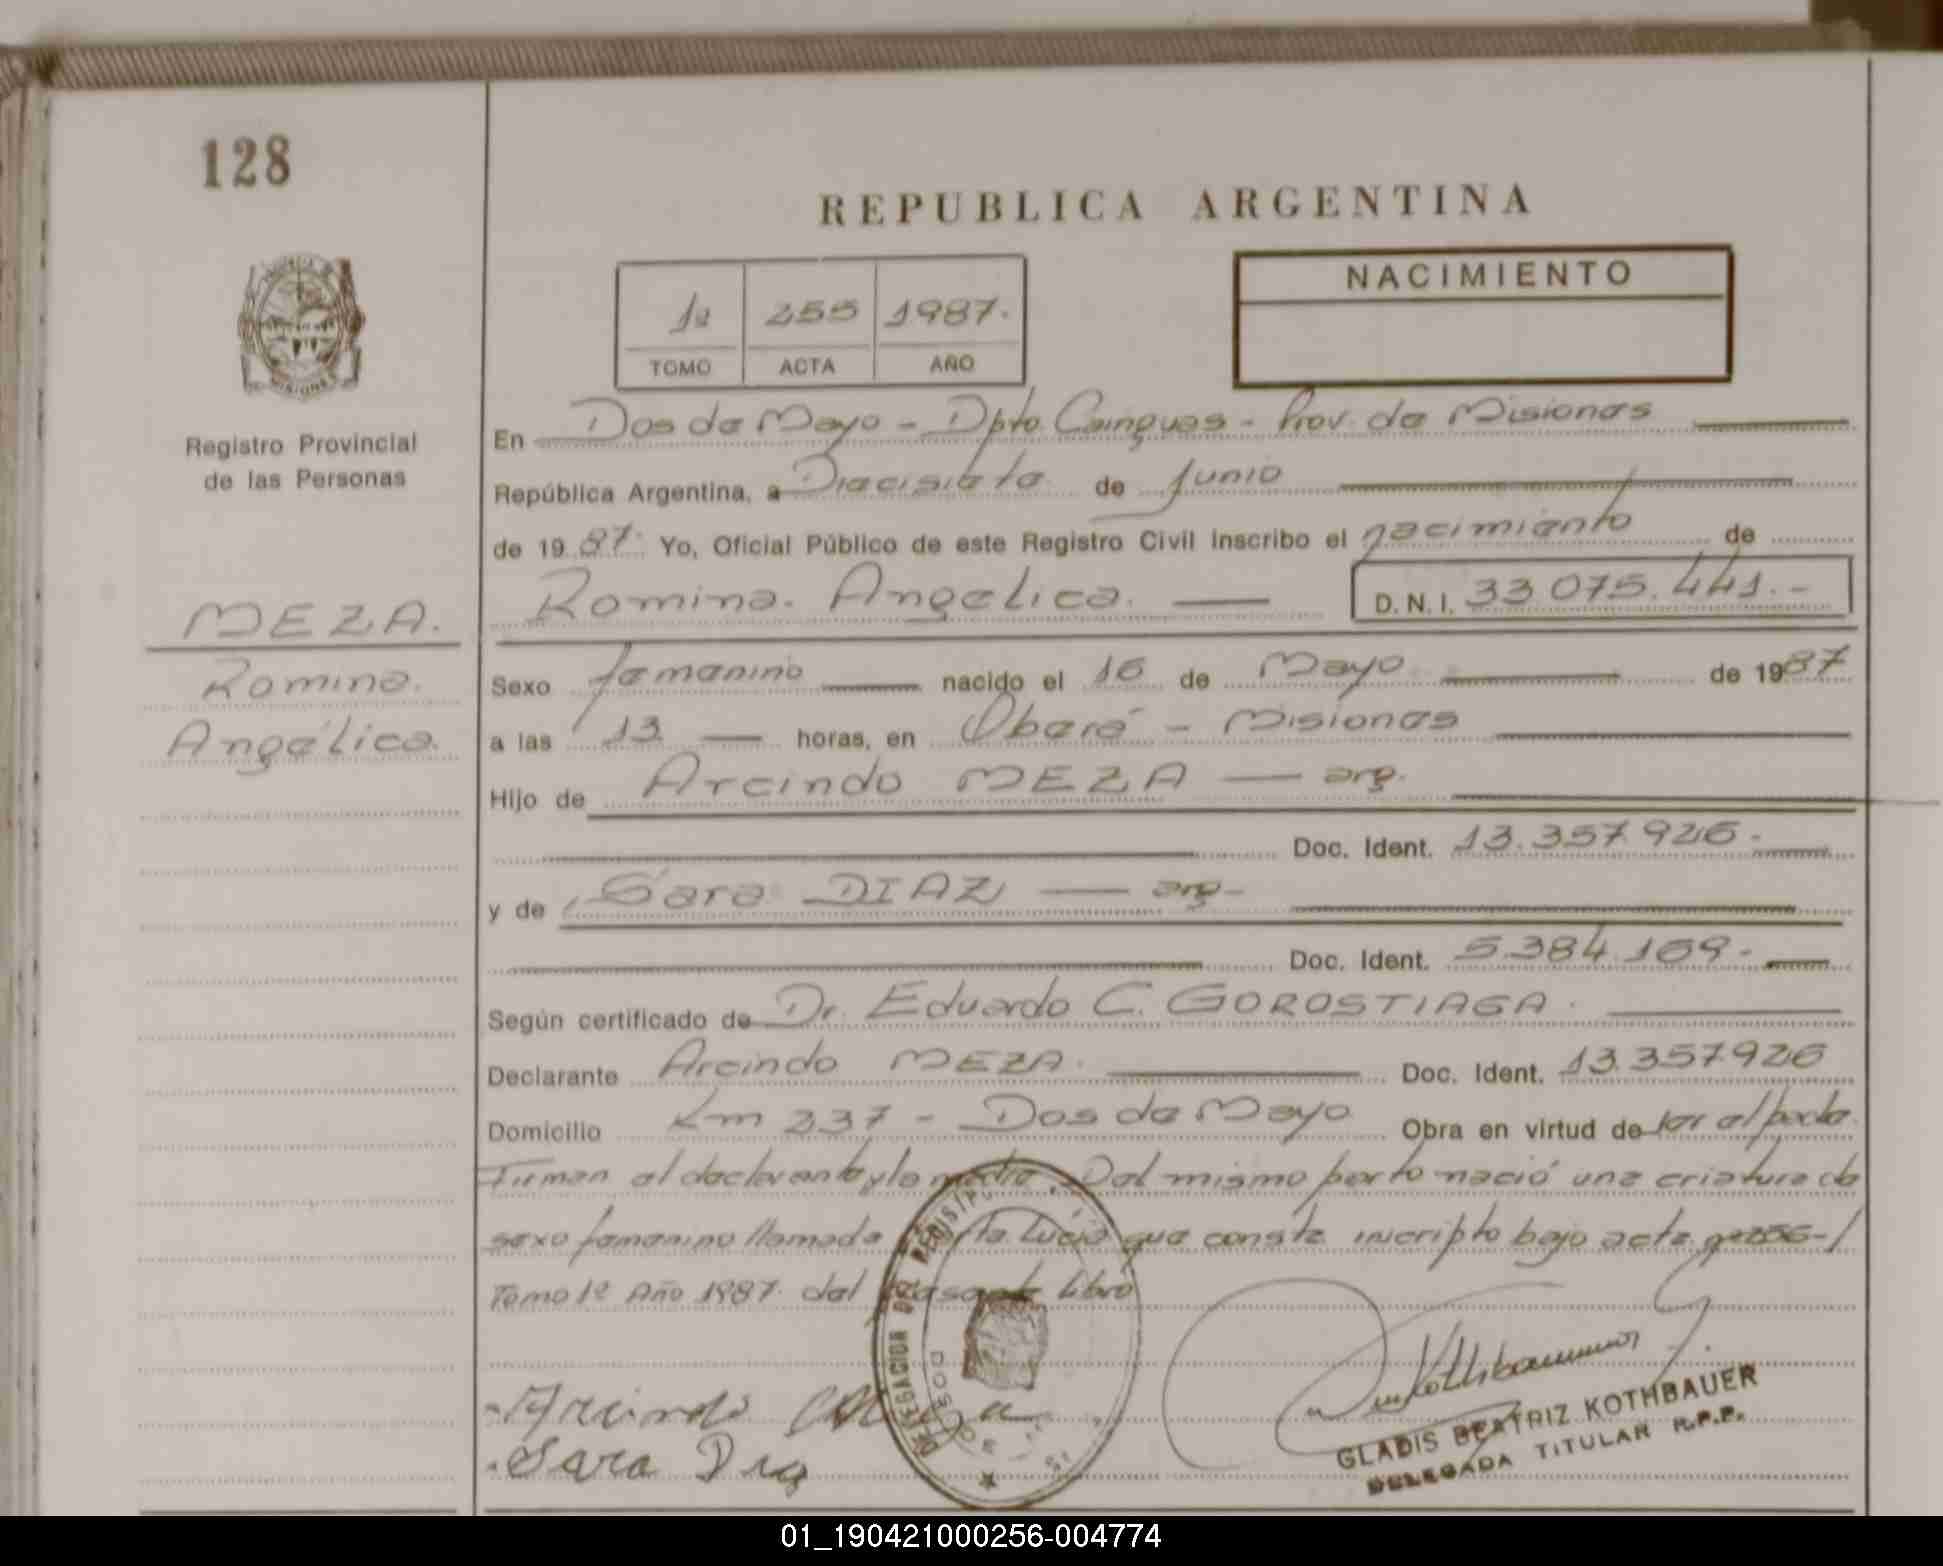 128
REPUBLICA ARGENTINA
NACIMIENTO
1ª 255 1987.
TOMO ACTA AÑO
Registro Provincial
de las Personas
MEZA.
Romina.
Angélica.
En Dos de Mayo - Dpto. Cainguas - Prov. de Misiones
República Argentina, a Diecisiete de Junio
de 1987. Yo, Oficial Público de este Registro Civil inscribo el nacimiento de
Romina. Angelica. D.N.I. 33 075.441.-
Sexo femenino nacido el 16 de Mayo de 1987
a las 13 horas, en Oberá - Misiones
Hijo de Arcindo MEZA — arg.
Doc. Ident. 13.357.926.-
y de Sara DIAZ — arg-
Doc. Ident. 5.384.169.-
Según certificado de Dr. Eduardo C. GOROSTIAGA.
Declarante Arcindo MEZA. Doc. Ident. 13.357926
Domicilio Km 237 - Dos de Mayo Obra en virtud de ser el padre.
Firman el declarante y la madre. Del mismo parto nació una criatura de
sexo femenino llamada Lucia que consta inscripto bajo acta nº256-/
Tomo 1º Año 1987. del presente libro
DELEGACION DEL REGISTRO
DOS DE
Arcindo
Sara Diaz
Kothbauer
GLADIS BEATRIZ KOTHBAUER
DELEGADA TITULAR R.P.P.
01_190421000256-004774